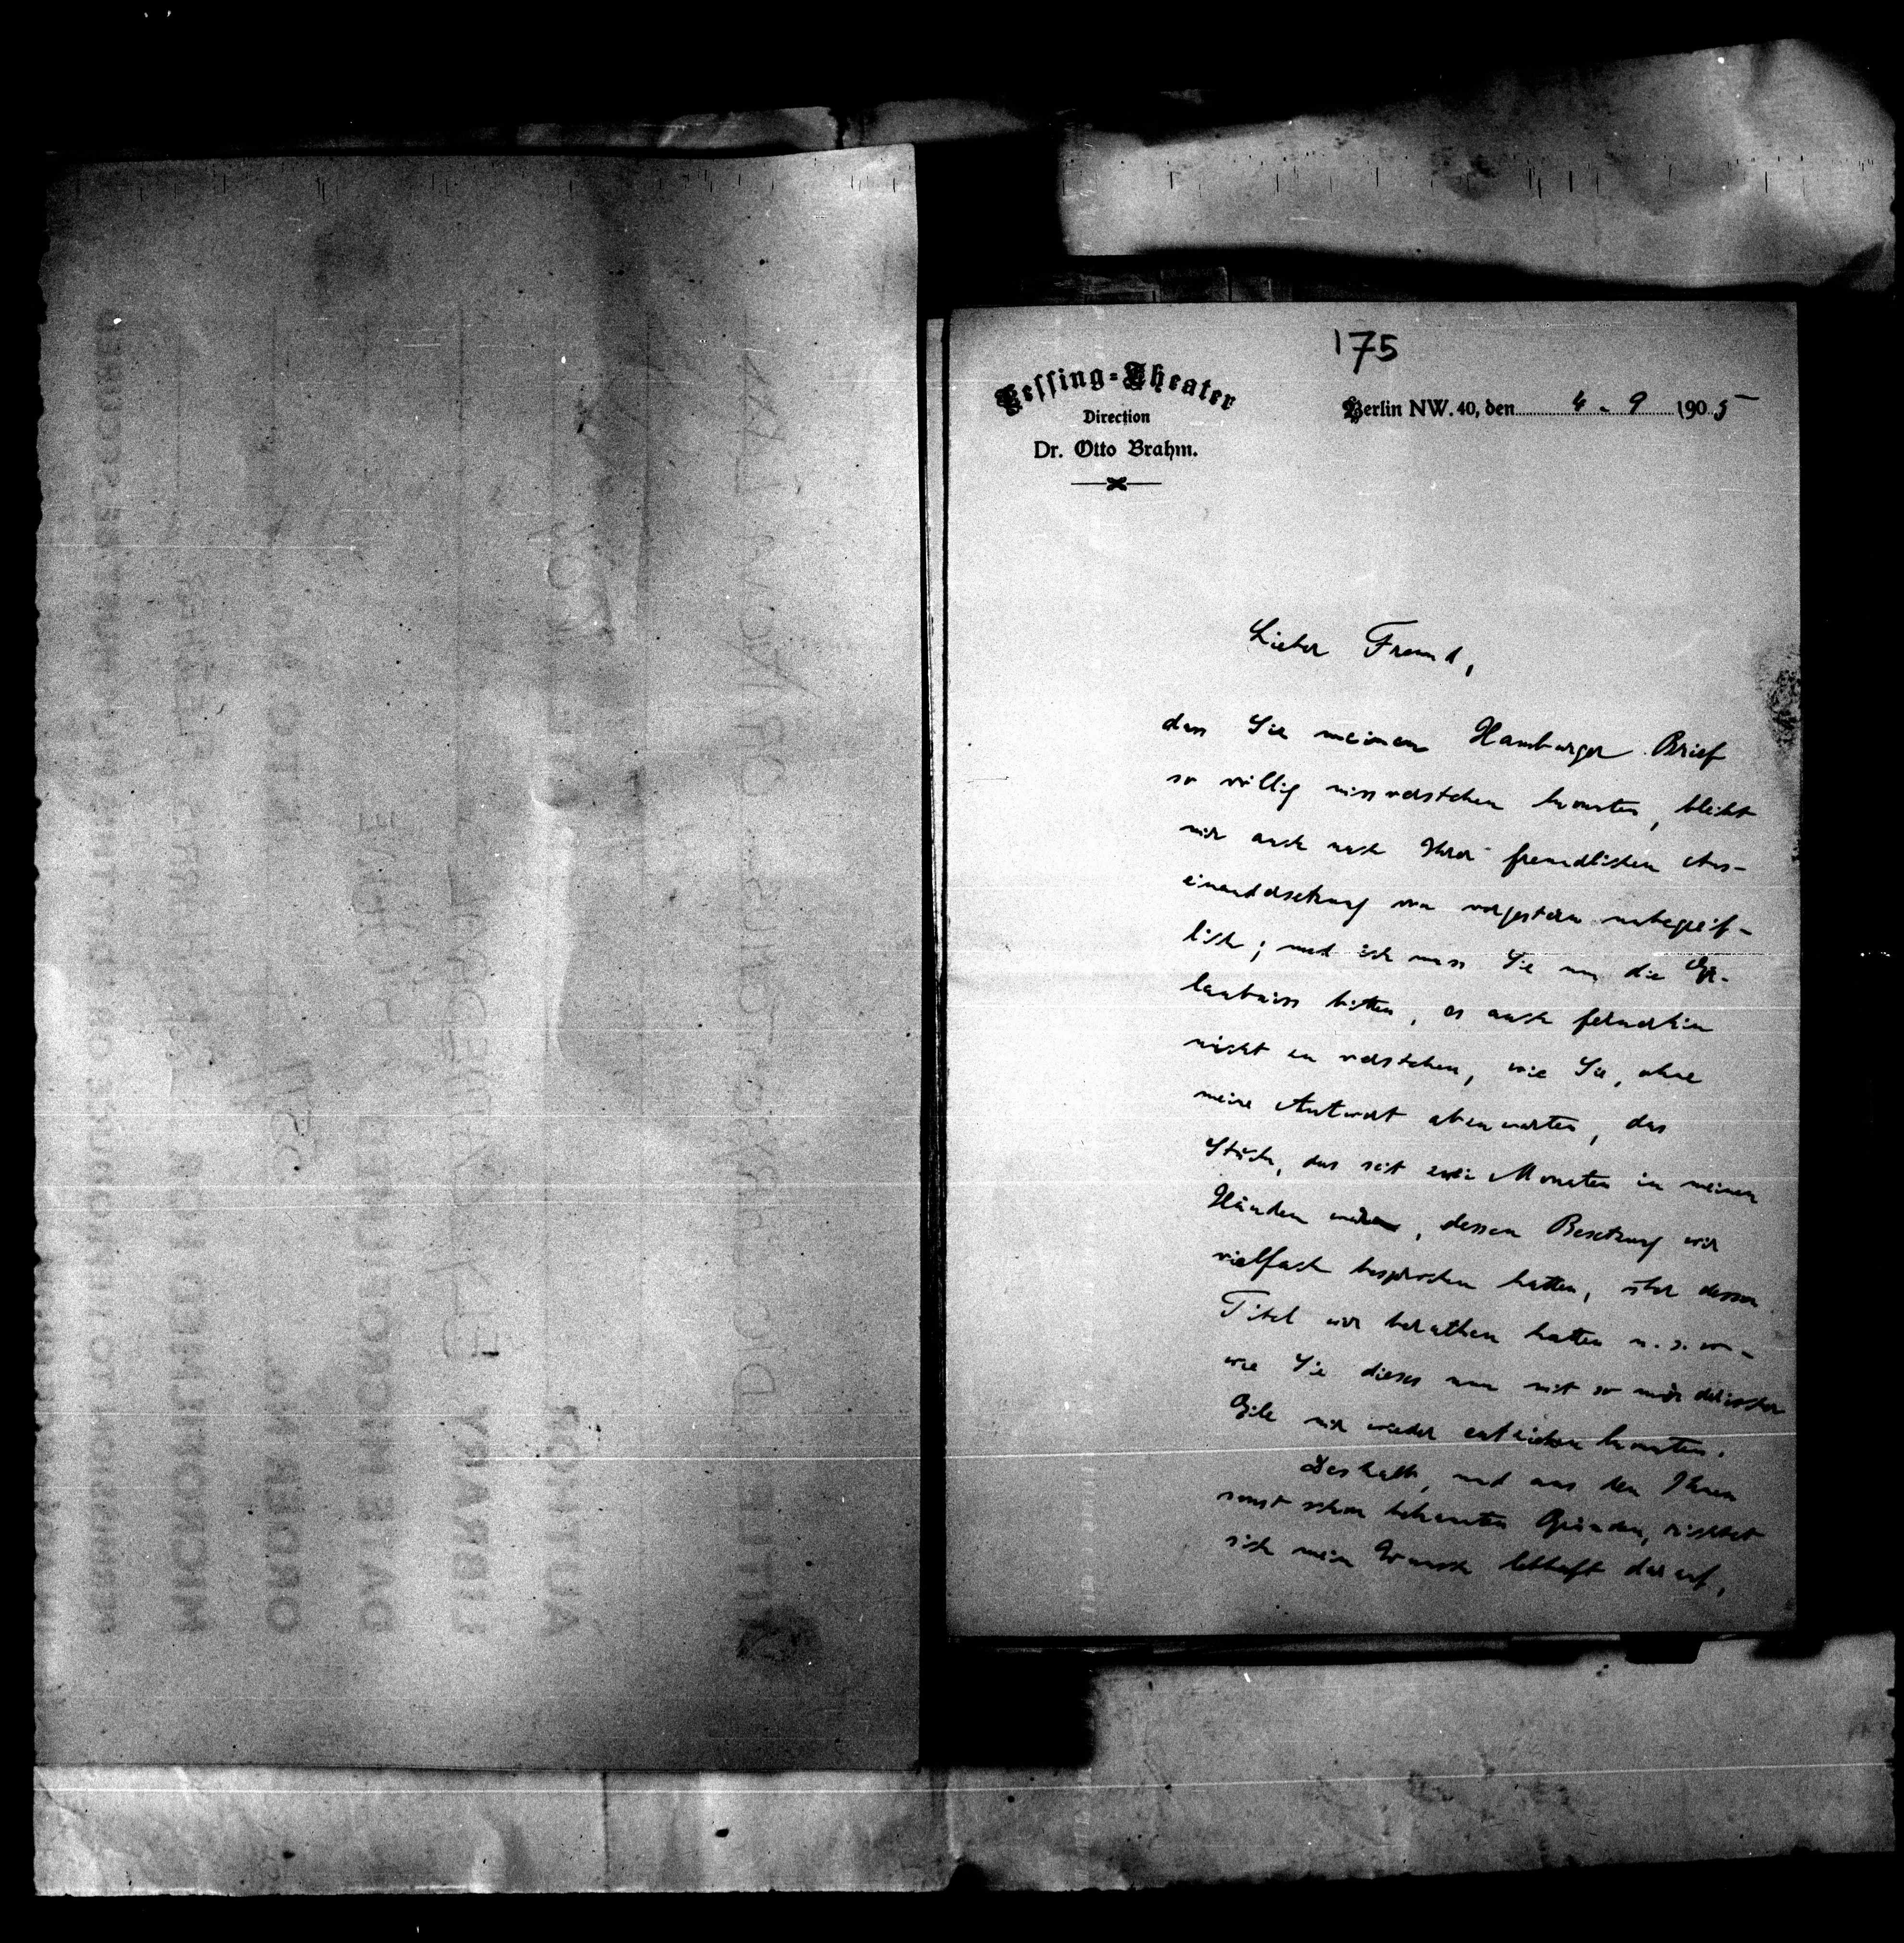 175
Lessing-Theater
Direction
Dr. Otto Brahm.
Berlin NW. 40, den 4. 9 1905
Lieber Freund,
dass Sie meinen Hamburger Brief
so völlig missverstehen konnten, bleibt
mir auch nach Ihrer freundlichen Aus-
einandersetzung von vorgestern unbegreif-
lich; und ich muss Sie um die Er-
laubniss bitten, es auch fernerhin
nicht zu verstehen, wie Sie, ohne
meine Antwort abzuwarten, das
Stück, das seit zwei Monaten in meinen
Händen, dessen Besetzung wir
vielfach besprochen hatten, über dessen
Titel wir berathen hatten u. s. w -
wie Sie dieses nun mit so mörderischer
Eile mir wieder entziehen konnten.
Deshalb, und aus den Ihnen
sonst schon bekannten Gründen, richtet
sich mein Wunsch lebhaft darauf,